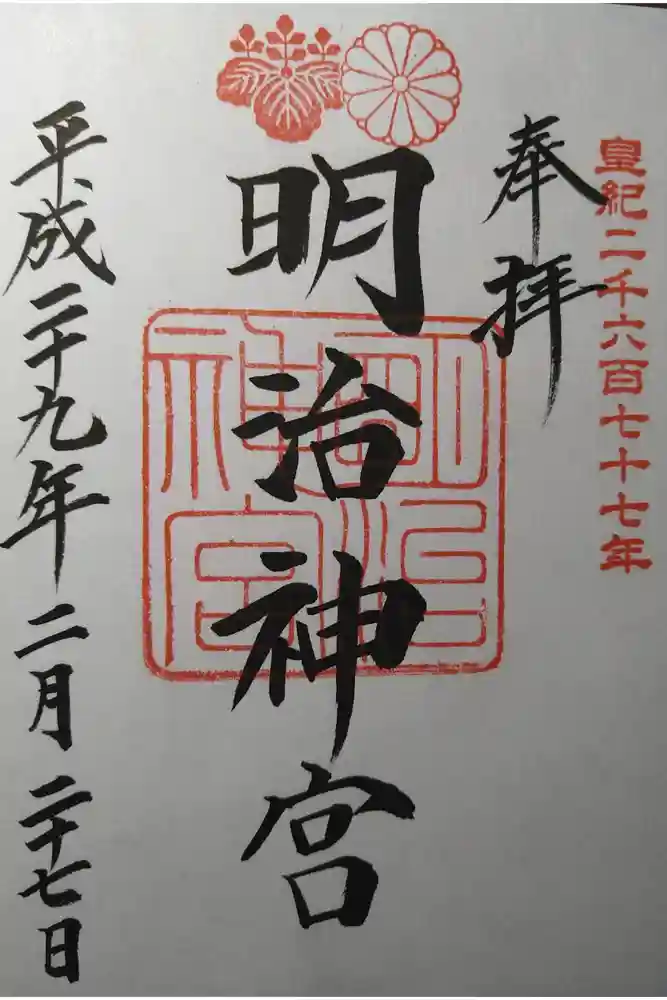 皇紀二千六百七十七年
奉拝
明治神宮
明治神宮
平成二十九年二月二十七日